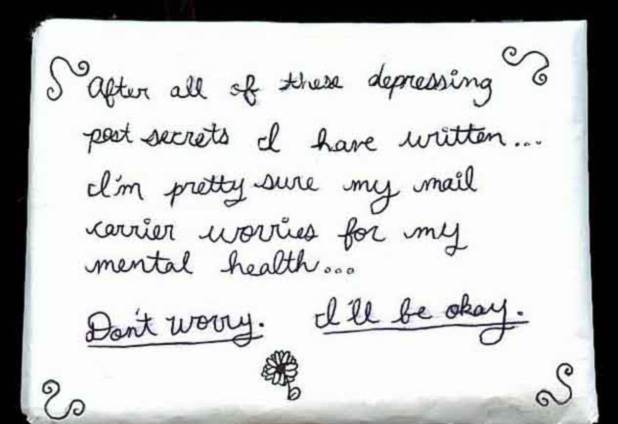 After all of these depressing
post secrets I have written...
I'm pretty sure my mail
carrier worries for my
mental health...
Don't worry. I'll be okay.